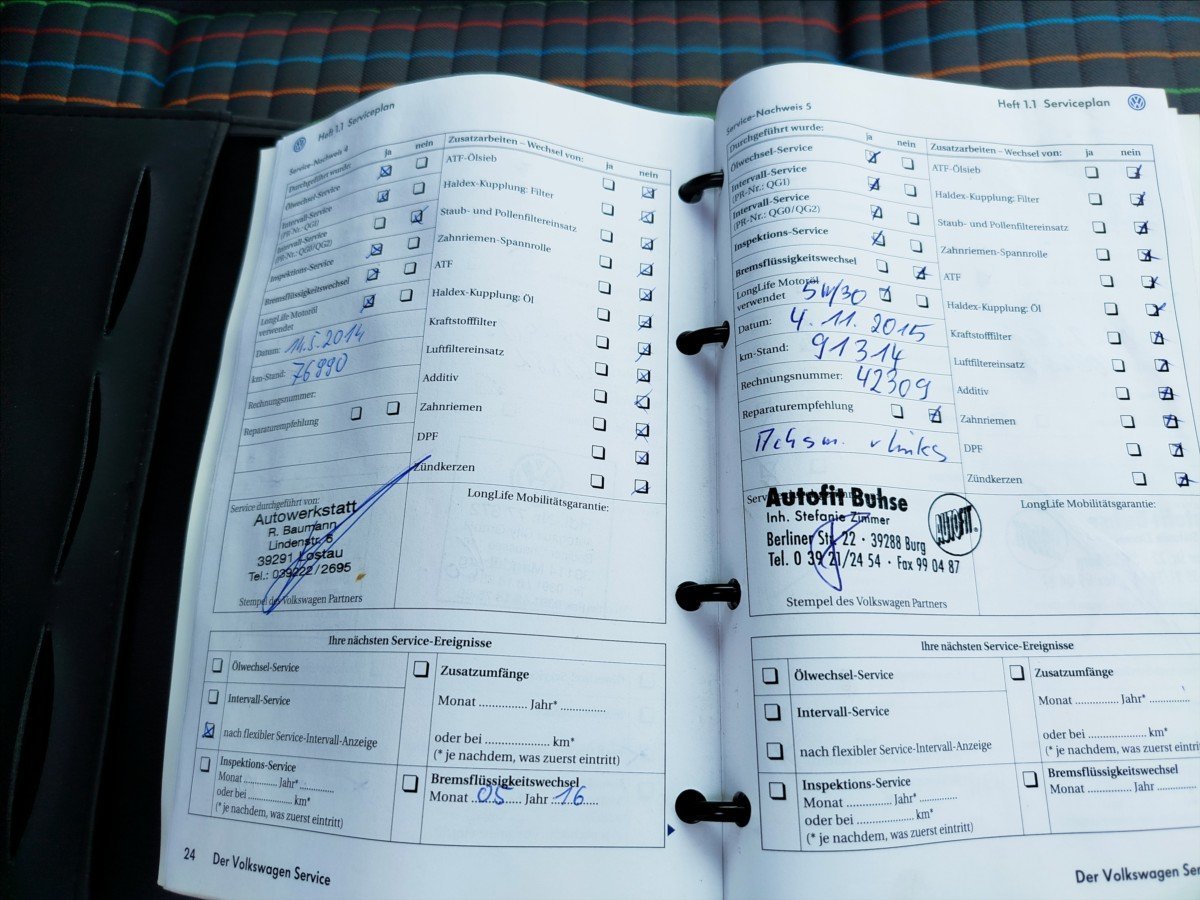 Heft 1.1 Serviceplan
Service-Nachweis 4
Durchgeführt wurde:
ja
nein
Ölwechsel-Service
Intervall-Service
(PR-Nr.: QG1)
Intervall-Service
(PR-Nr.: QG0/QG2)
Inspektions-Service
Bremsflüssigkeitswechsel
LongLife Motoröl
verwendet
Datum: 14.5.2014
km-Stand: 76990
Rechnungsnummer:
Reparaturempfehlung
Zusatzarbeiten – Wechsel von:
ja
nein
ATF-Ölsieb
Haldex-Kupplung: Filter
Staub- und Pollenfiltereinsatz
Zahnriemen-Spannrolle
ATF
Haldex-Kupplung: Öl
Kraftstofffilter
Luftfiltereinsatz
Additiv
Zahnriemen
DPF
Zündkerzen
Service durchgeführt von:
Autowerkstatt
R. Baumann
Lindenstr. 6
39291 Lostau
Tel.: 039222/2695
Stempel des Volkswagen Partners
LongLife Mobilitätsgarantie:
Ihre nächsten Service-Ereignisse
Ölwechsel-Service
Intervall-Service
nach flexibler Service-Intervall-Anzeige
Inspektions-Service
Monat .............. Jahr* ..............
oder bei .................. km*
(* je nachdem, was zuerst eintritt)
Zusatzumfänge
Monat .............. Jahr* ..............
oder bei .................... km*
(* je nachdem, was zuerst eintritt)
Bremsflüssigkeitswechsel
Monat 05 Jahr 16
24 Der Volkswagen Service
Heft 1.1 Serviceplan
Service-Nachweis 5
Durchgeführt wurde:
ja
nein
Ölwechsel-Service
Intervall-Service
(PR-Nr.: QG1)
Intervall-Service
(PR-Nr.: QG0/QG2)
Inspektions-Service
Bremsflüssigkeitswechsel
LongLife Motoröl
verwendet 5W/30
Datum: 4.11.2015
km-Stand: 91314
Rechnungsnummer: 42309
Reparaturempfehlung
v links
Zusatzarbeiten – Wechsel von:
ja
nein
ATF-Ölsieb
Haldex-Kupplung: Filter
Staub- und Pollenfiltereinsatz
Zahnriemen-Spannrolle
ATF
Haldex-Kupplung: Öl
Kraftstofffilter
Luftfiltereinsatz
Additiv
Zahnriemen
DPF
Zündkerzen
Autofit Buhse
Inh. Stefanie Zimmer
Berliner Str. 22 · 39288 Burg
Tel. 0 39 21/24 54 · Fax 99 04 87
AUTOFIT
Stempel des Volkswagen Partners
LongLife Mobilitätsgarantie:
Ihre nächsten Service-Ereignisse
Ölwechsel-Service
Intervall-Service
nach flexibler Service-Intervall-Anzeige
Inspektions-Service
Monat .............. Jahr* ..............
oder bei .................. km*
(* je nachdem, was zuerst eintritt)
Zusatzumfänge
Monat .............. Jahr* ..............
oder bei .................... km*
(* je nachdem, was zuerst eintritt)
Bremsflüssigkeitswechsel
Monat .............. Jahr ..............
Der Volkswagen Ser